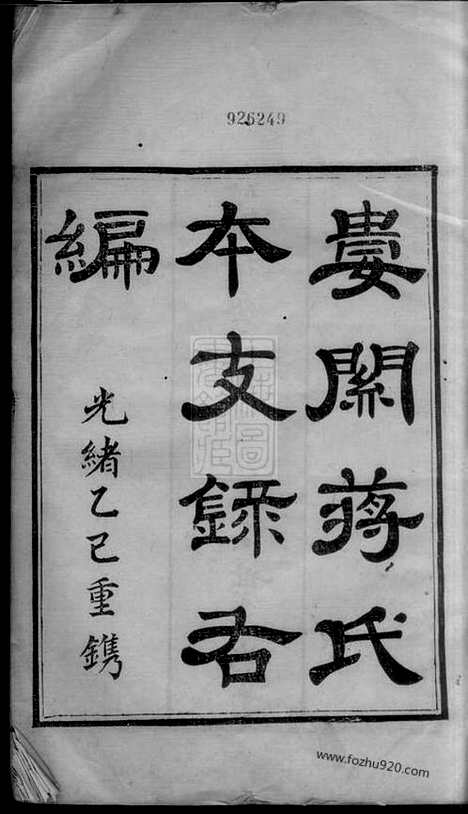 926249
婁關蔣氏
本支錄右
編
光緒乙巳重鐫
www.fozhu920.com